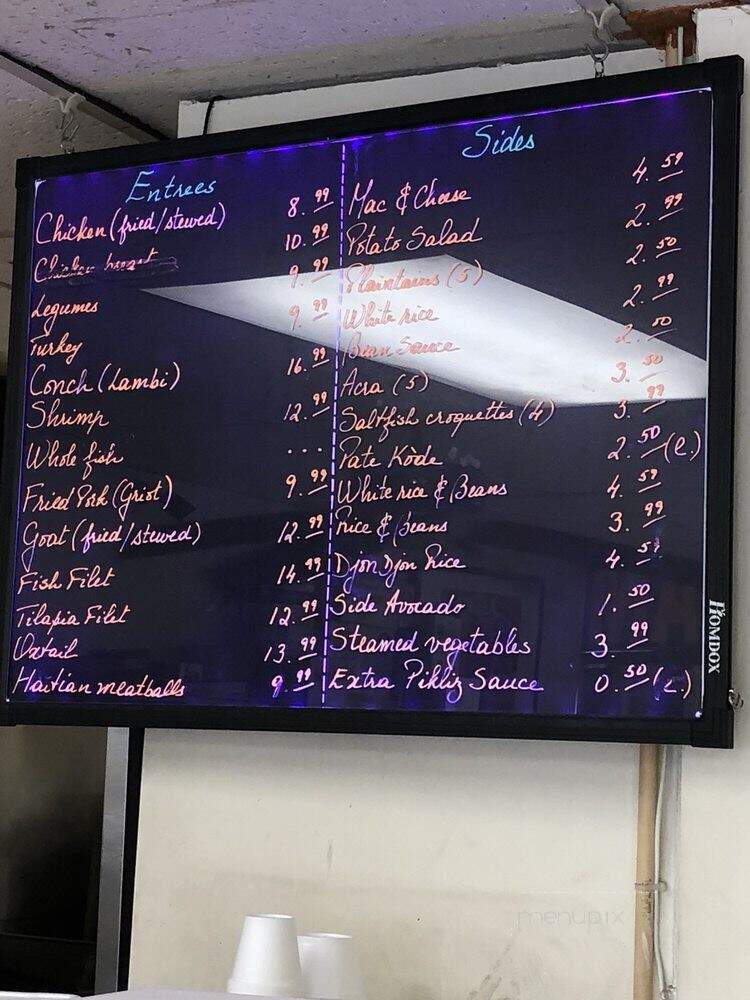 Entrees
Chicken (fried/stewed) 8.99
Chicken 10.99
Legumes 9.99
Turkey 9.99
Conch (Lambi) 16.99
Shrimp 12.99
Whole fish ...
Fried Pork (Griot) 9.99
Goat (fried/stewed) 12.99
Fish Filet 14.99
Tilapia Filet 12.99
Oxtail 13.99
Haitian meatballs 9.99
Sides
Mac & Cheese 4.59
Potato Salad 2.99
Plaintains (5) 2.50
White rice 2.99
Bean Sauce 2.50
Acra (5) 3.50
Saltfish croquettes (4) 3.99
Pate Kòde 2.50 (e.)
White rice & Beans 4.59
Rice & Beans 3.99
Djon Djon Rice 4.59
Side Avocado 1.50
Steamed vegetables 3.99
Extra Pikliz Sauce 0.50 (e.)
HOMDOX
menupix